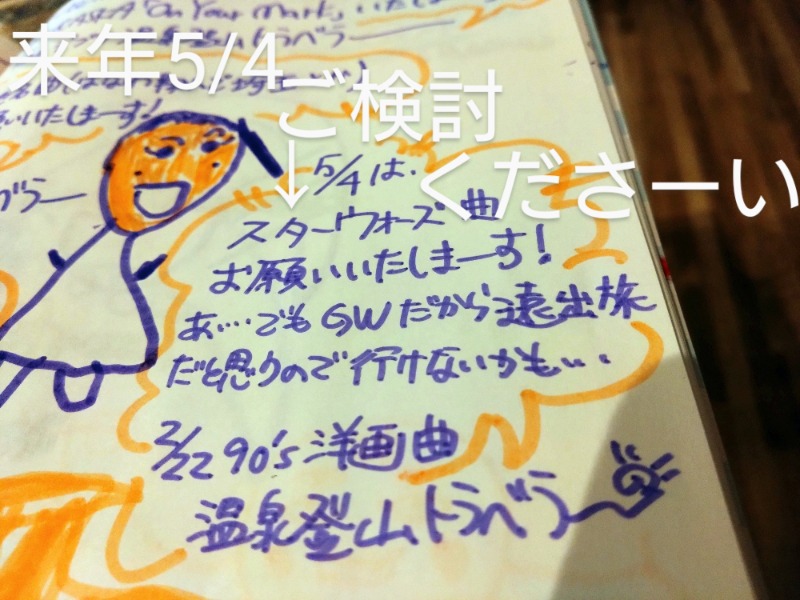 「On Your Mark」いたしま
登山トラベラー
来年5/4
ご検討
くださーい
いたしまーす!
ベラー
↓5/4は、
スターウォーズ曲
お願いいたしまーす!
あ…でもGWだから遠出旅
だと思うので行けないかも…
2/22 90's洋画曲
温泉登山トラベラー